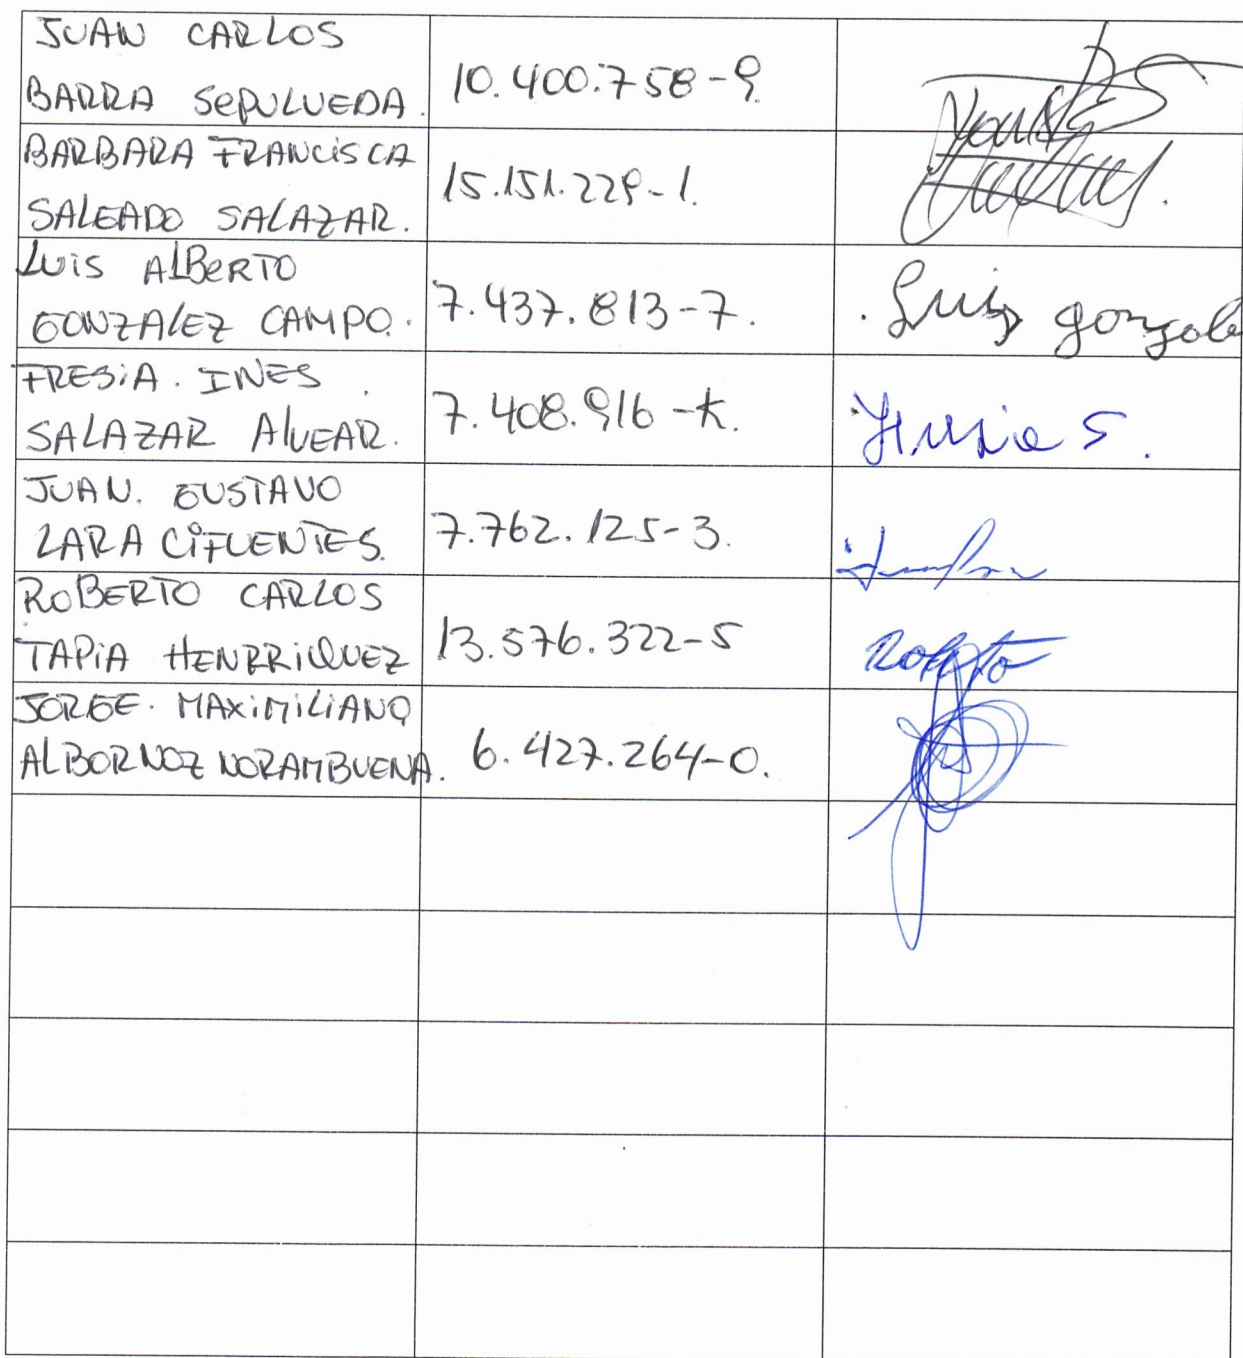 JUAN CARLOS
BARRA SEPULVEDA.
10.400.758-9.
BARBARA FRANCISCA
SALGADO SALAZAR.
15.151.229-1.
LUIS ALBERTO
GONZALEZ CAMPO.
7.437.813-7.
Luis gonzale
FRESIA. INES
SALAZAR ALVEAR.
7.408.916-K.
Fresia S.
JUAN. GUSTAVO
LARA CIFUENTES.
7.762.125-3.
ROBERTO CARLOS
TAPIA HENRRIQUEZ
13.576.322-5
Roberto
JORGE. MAXIMILIANO
ALBORNOZ NORAMBUENA.
6.427.264-0.